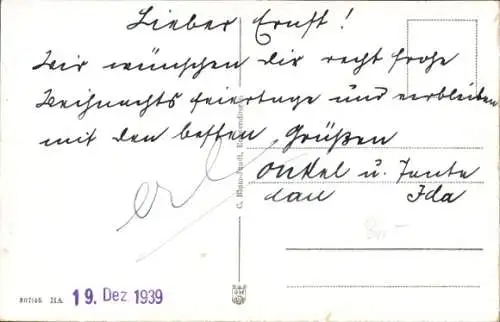 Lieber Ernst!
Wir wünschen dir recht frohe
Weihnachts feiertage und verbleiben
mit den besten Grüßen
Onkel u. Tante
Ida
erl
19. Dez 1939